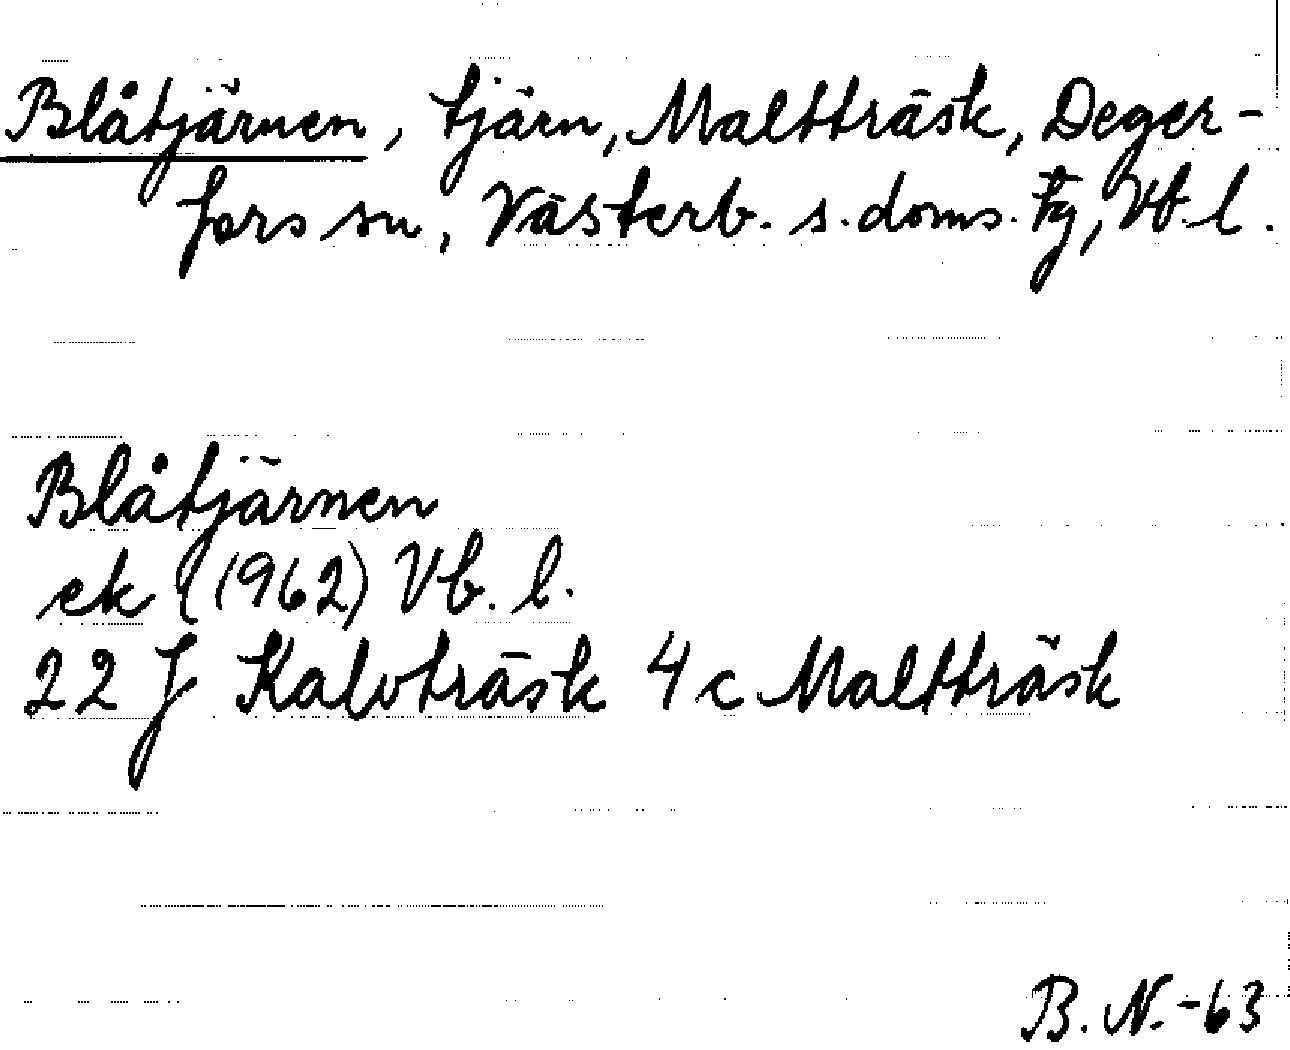 Blåtjärnen, tjärn, Maltträsk, Deger-
fors sn, Västerb. s. doms. tg, Vb. l.
Blåtjärnen
ek (1962) Vb. l.
22 J Kalvträsk 4 c Maltträsk
B. N. -63